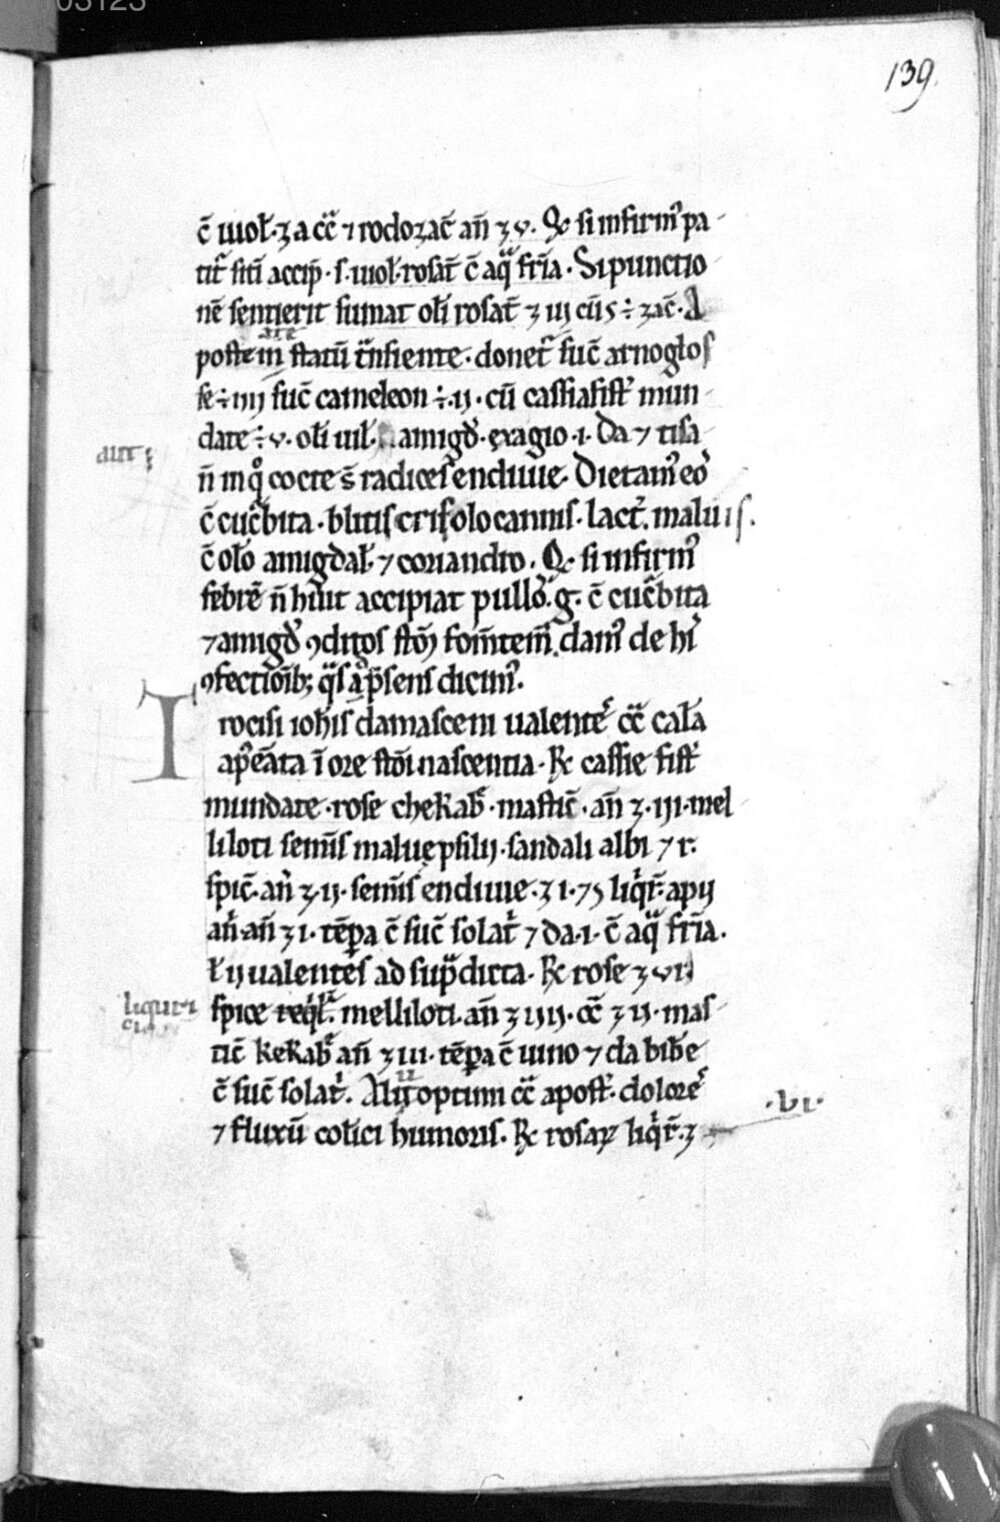 03123
139
c̄ uiol̄·ʒ a cc̄ ⁊ rodoʒac̄ an̄ ʒ v· Qc̄ si infirm᷒ pa
tit᷑ siti accip̄·s·uiol·rosat̄ c̄ aq̄ fri̅a·Si punctio
nē senserit sumat oli rosat̄ ʒ iij cū s ÷ ʒac̄· A
postem̄ statū t̅nsiente·donet᷑ suc̄ arnoglos
se ÷ iiij suc̄ cameleon ÷ ·ij·cū cassiafist᷑ mun
aut
date ÷ v· oli uil· amigd᷑·exagio·i·Da ⁊ tisa
n̄ in qͦ cocte s̄ radices endiuie·Dietam᷒ eo᷑
c̄ cuc᷑bita·blitis crisolocannis·lact᷑·maluis.
c̄ oło amigdal̄·⁊ coriandro·Qc̄ si infirm᷒
febrē n̄ hiut accipiat pullo᷑·g·c̄ cuc᷑bita
⁊amigd᷑ ꝯditos stō fom̄tem̄ dam᷒ de hi᷑
ꝯfectioīb; q̄s ap̄sens dicim᷒.
T
rocisi ioh̄is damasceni ualente᷑ cc̄ cal̄a
ap᷑eāta ī ore stōi nascentia·℞ cassie fist᷑
mundate·rose chekab᷑·mastic̄·an̄ ʒ·iij·mel
liloti sem̄is malue psilij·sandali albi ⁊ r᷑
spic̄·an̄ ʒ·ij·sem̄is endiuie·ʒ i·⁊ s liqͥr̄·apij
an̄·an̄ ʒ i·tēpa c̄ suc̄ solat᷑ ⁊ da·i·c̄ aq̄ fri̅a.
ł ij ualentes ad sup̄dicta·℞ rose ʒ vij
liquiri
ci
spice reqͥl᷑·melliloti·an̄ ʒ iiij·cc̄ ʒ ij·mas
tic̄ kekab᷑ an̄ ʒ iii·tēpa c̄ uino ⁊ da bibe᷑
c̄ suc̄ solat᷑. Alij optimi cc̄ apost᷑·dolore᷑
·vi·
⁊ fluxū colici humoris·℞ rosaꝝ liqͥr̄·ʒ